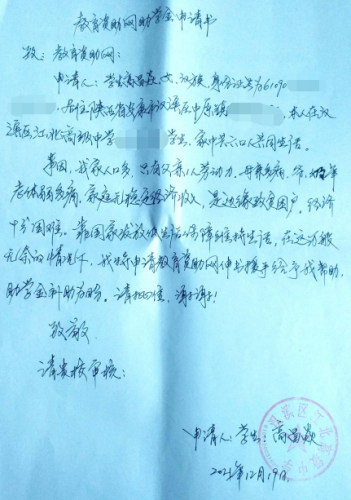 教育资助网助学金申请书
敬：教育资助网：
申请人：学生高 女，汉族，身份证号为61090
居住陕西省安康市汉滨区中原镇 ，本人在汉
滨区江北高级中学 学生，家中共六口人共同生活。
原因，我家人口多，只有父亲一人劳动力，母亲多病，爷奶年
老体弱多病，家庭无稳定经济收入，是边缘致贫困户，经济
十分困难。靠国家发放低生活保障维持生活，在这万般
无奈的情况下，我特申请教育资助网伸出援手给予我帮助，
助学金补助为盼。请批准，谢谢！
致敬
请贵校审核：
申请人：学生：高
2021年12月19日
汉滨区江北高级中学